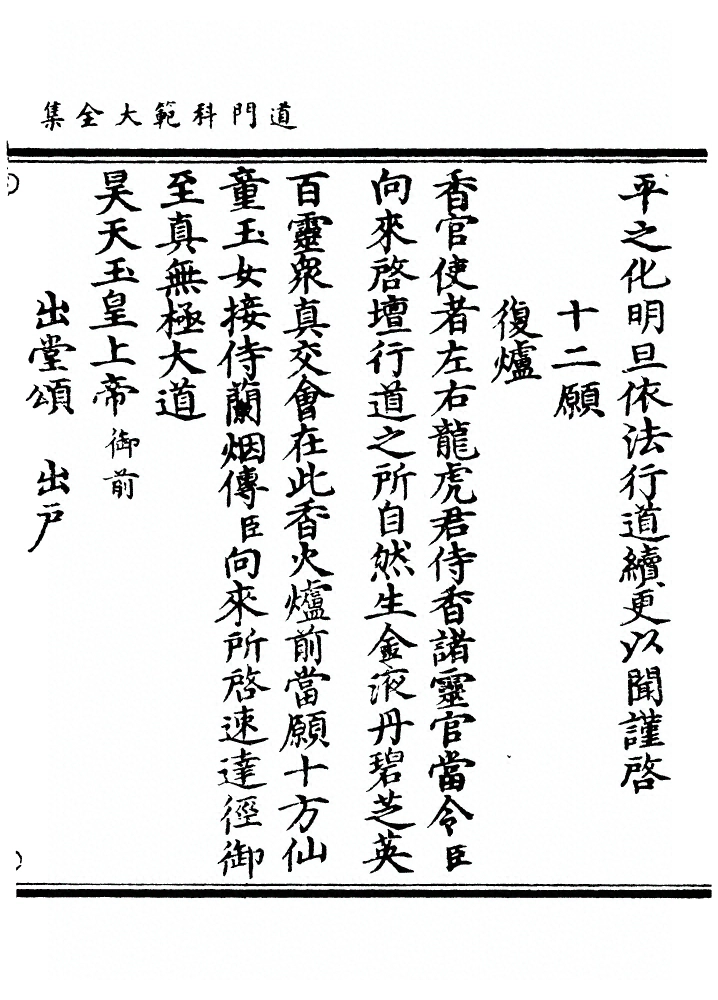 道門科範大全集
平之化明旦依法行道續更以聞謹啓
十二願
復爐
香官使者左右龍虎君侍香諸靈官當令臣
向來啓壇行道之所自然生金液丹碧芝英
百靈衆真交會在此香火爐前當願十方仙
童玉女接侍蘭烟傳臣向來所啓速達徑御
至真無極大道
昊天玉皇上帝御前
出堂頌　出戶